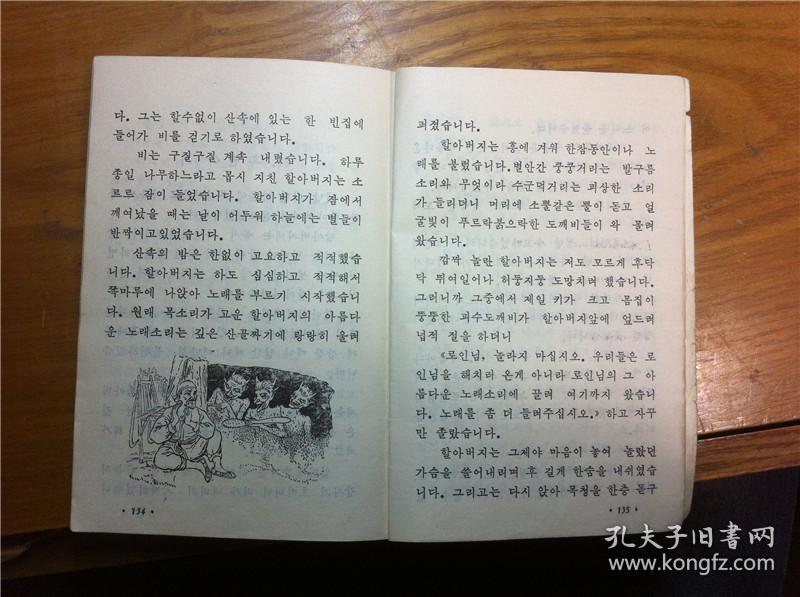 다. 그는 할수없이 산속에 있는 한 빈집에
들어가 비를 걷기로 하였습니다.
비는 구질구질 계속 내렸습니다. 하루
종일 나무하느라고 몹시 지친 할아버지는 소
르르 잠이 들었습니다. 할아버지가 잠에서
깨어났을 때는 날이 어두워 하늘에는 별들이
반짝이고있었습니다.
산속의 밤은 한없이 고요하고 적적했습
니다. 할아버지는 하도 심심하고 적적해서
쪽마루에 나앉아 노래를 부르기 시작했습니
다. 원래 목소리가 고운 할아버지의 아름다
운 노래소리는 깊은 산골짜기에 랑랑히 울려
· 134 ·
퍼졌습니다.
할아버지는 흥에 겨워 한참동안이나 노
래를 불렀습니다. 별안간 쿵쿵거리는 발구름
소리와 무엇이라 수군덕거리는 괴상한 소리
가 들리더니 머리에 소뿔같은 뿔이 돋고 얼
굴빛이 푸르락붉으락한 도깨비들이 와 몰려
왔습니다.
깜짝 놀란 할아버지는 저도 모르게 후닥
닥 뛰여일어나 허둥지둥 도망치려 했습니다.
그러니까 그중에서 제일 키가 크고 몸집이
뚱뚱한 괴수도깨비가 할아버지앞에 엎드려
넙적 절을 하더니
《로인님, 놀라지 마십시오. 우리들은 로
인님을 해치러 온게 아니라 로인님의 그 아
름다운 노래소리에 끌려 여기까지 왔습니
다. 노래를 좀 더 들려주십시오.》 하고 자꾸
만 졸랐습니다.
할아버지는 그제야 마음이 놓여 놀랐던
가슴을 쓸어내리며 후 길게 한숨을 내쉬였습
니다. 그리고는 다시 앉아 목청을 한층 돋구
· 135 ·
孔夫子旧書网
www.kongfz.com